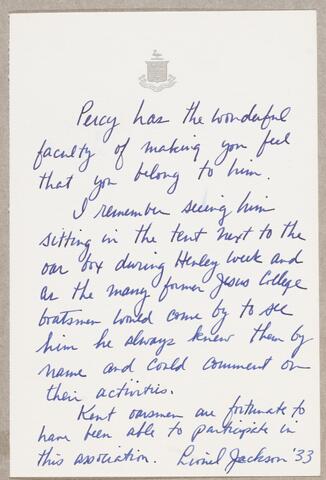 Percy has the wonderful
faculty of making you feel
that you belong to him.
I remember seeing him
sitting in the tent next to the
oar box during Henley week and
as the many former Jesus College
boatsmen would come by to see
him he always knew them by
name and could comment on
their activities.
Kent oarsmen are fortunate to
have been able to participate in
this association. Lionel Jackson '33